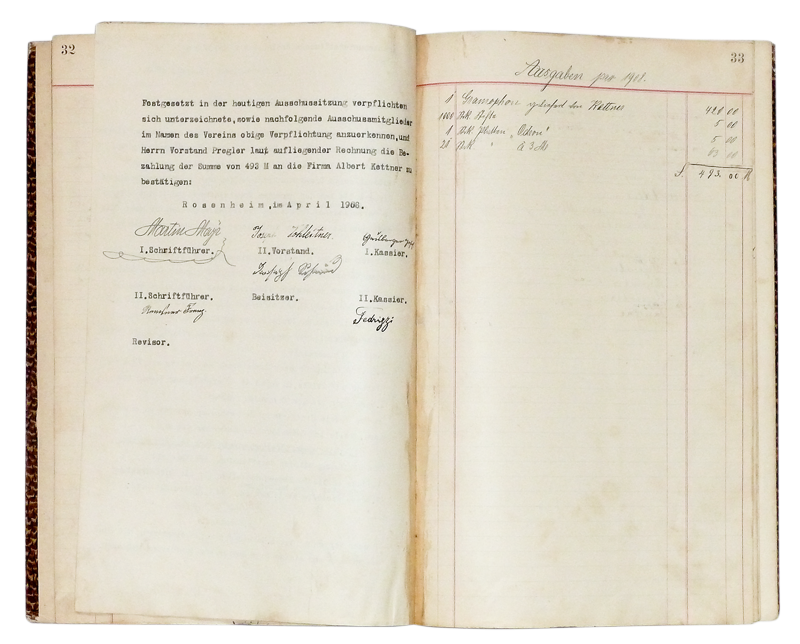 32
Festgesetzt in der heutigen Ausschussitzung verpflichten
sich unterzeichnete,sowie nachfolgende Ausschusmitglieder
im Namen des Vereins obige Verpflichtung anzuerkennen,und
Herrn Vorstand Pregler laut aufliegender Rechnung die Be-
zahlung der Summe von 493 M an die Firma Albert Kettner zu
bestätigen:
Rosenheim,im April 1908.
Martin
I.Schriftführer. II.Vorstand. I.Kassier.
II.Schriftführer. Beisitzer. II.Kassier.
Franz Pedrizzi
Revisor.
33
Ausgaben pro 1908.
1 Gramophon geliefert von Kettner 420 00
1000 Stk. Stifte 5 00
1 Stk. Platten „Odeon" 5 00
21 Stk. " à 3 M 63 00
S. 493. 00